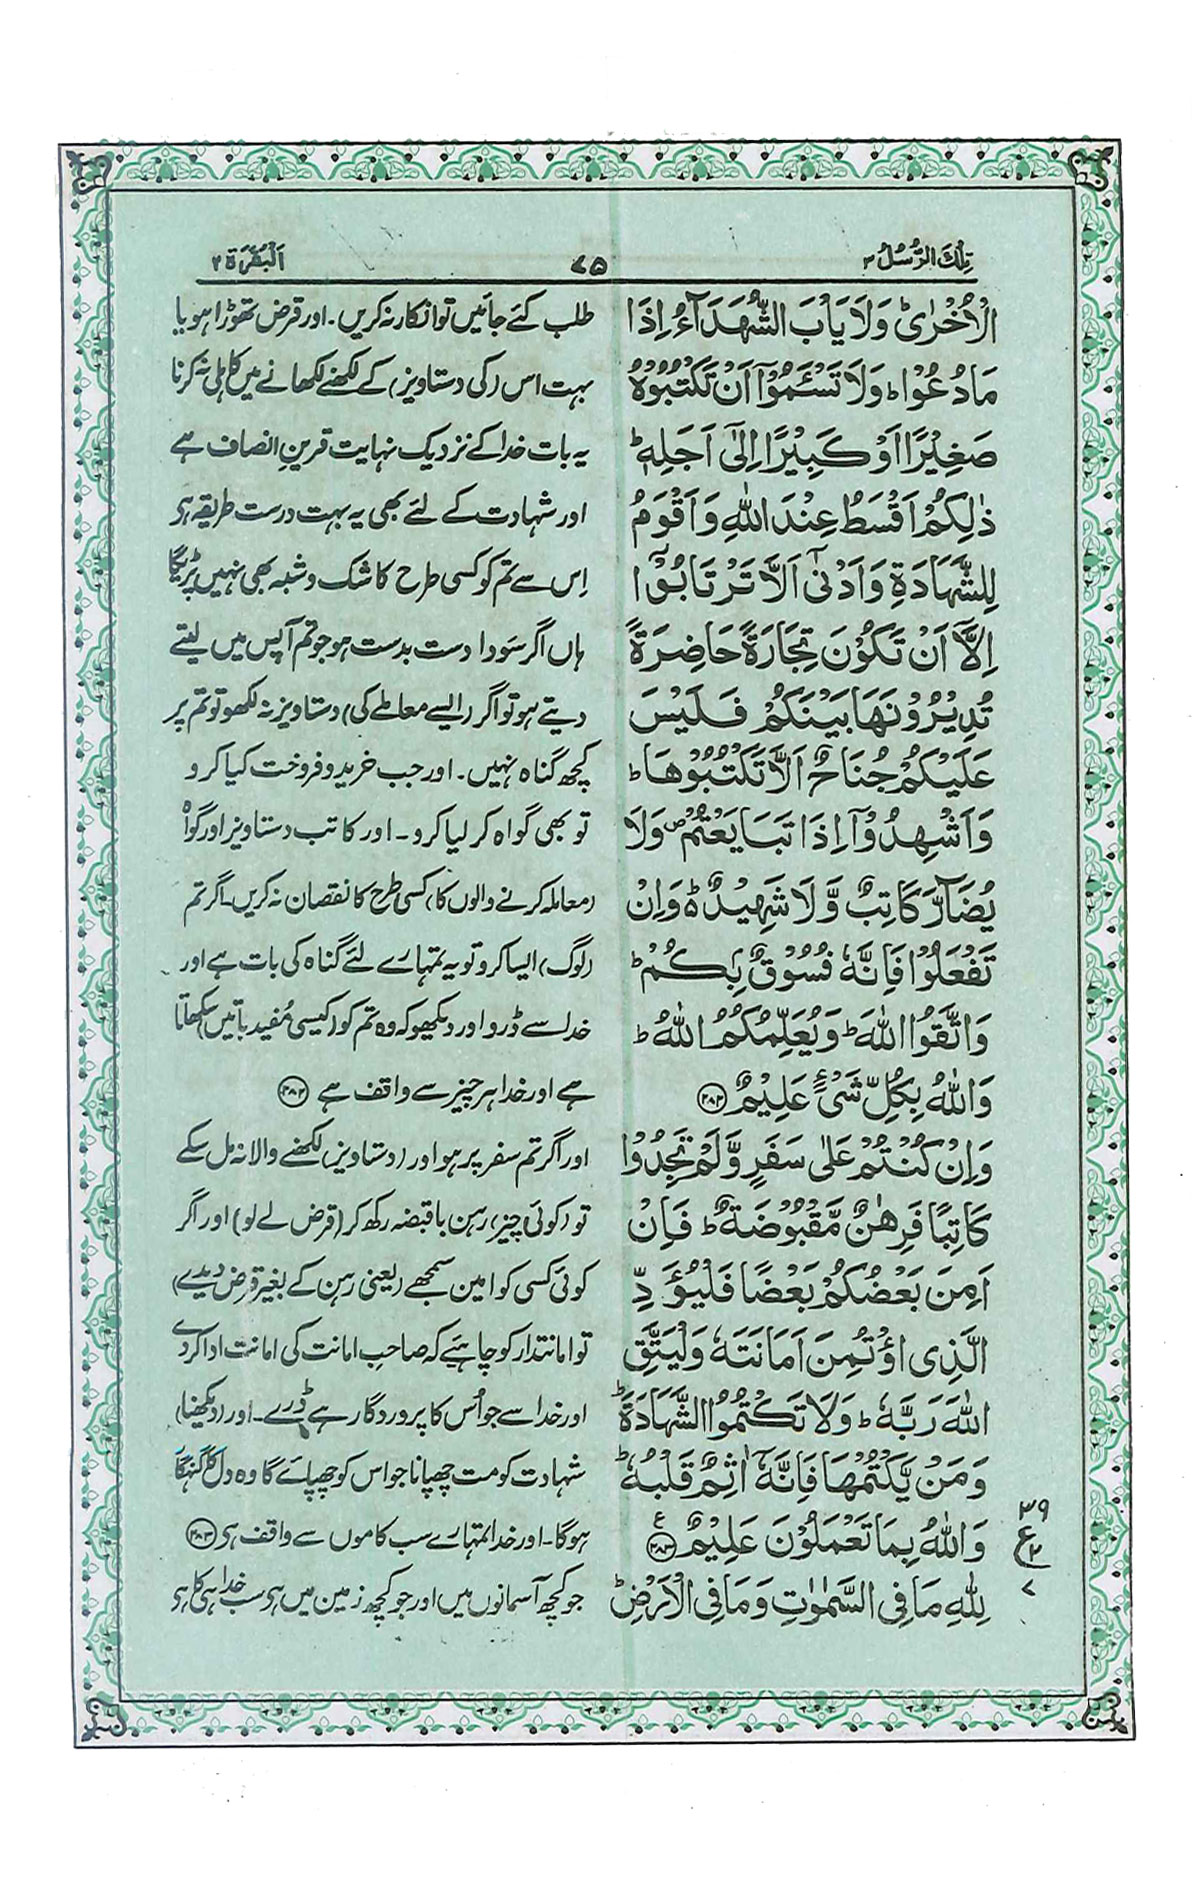 تِلْكَ الرُّسُلُ ٣
٧٥
اَلْبَقَرَة ٢
الْاُخْرٰىؕ وَلَا يَاْبَ الشُّهَدَآءُ اِذَا
مَا دُعُوْاؕ وَلَا تَسْـَٔمُوْۤا اَنْ تَكْتُبُوْهُ
صَغِيْرًا اَوْ كَبِيْرًا اِلٰۤى اَجَلِهٖؕ
ذٰلِكُمْ اَقْسَطُ عِنْدَ اللّٰهِ وَاَقْوَمُ
لِلشَّهَادَةِ وَاَدْنٰۤى اَلَّا تَرْتَابُوْۤا
اِلَّاۤ اَنْ تَكُوْنَ تِجَارَةً حَاضِرَةً
تُدِيْرُوْنَهَا بَيْنَكُمْ فَلَيْسَ
عَلَيْكُمْ جُنَاحٌ اَلَّا تَكْتُبُوْهَاؕ
وَاَشْهِدُوْۤا اِذَا تَبَايَعْتُمْ۪ وَلَا
يُضَآرَّ كَاتِبٌ وَّلَا شَهِيْدٌ۬ؕ وَاِنْ
تَفْعَلُوْا فَاِنَّهٗ فُسُوْقٌۢ بِكُمْؕ
وَاتَّقُوا اللّٰهَؕ وَيُعَلِّمُكُمُ اللّٰهُؕ
وَاللّٰهُ بِكُلِّ شَيْءٍ عَلِيْمٌ ﴿٢٨٢﴾
وَاِنْ كُنْتُمْ عَلٰى سَفَرٍ وَّلَمْ تَجِدُوْا
كَاتِبًا فَرِهٰنٌ مَّقْبُوْضَةٌؕ فَاِنْ
اَمِنَ بَعْضُكُمْ بَعْضًا فَلْيُؤَدِّ
الَّذِى اؤْتُمِنَ اَمَانَتَهٗ وَلْيَتَّقِ
اللّٰهَ رَبَّهٗؕ وَلَا تَكْتُمُوا الشَّهَادَةَؕ
وَمَنْ يَّكْتُمْهَا فَاِنَّهٗۤ اٰثِمٌ قَلْبُهٗؕ
وَاللّٰهُ بِمَا تَعْمَلُوْنَ عَلِيْمٌ ﴿٢٨٣﴾ ع
لِلّٰهِ مَا فِى السَّمٰوٰتِ وَمَا فِى الْاَرْضِؕ
٣٩
ع
٧
طلب کئے جائیں تو انکار نہ کریں۔ اور قرض تھوڑا ہو یا
بہت اس (کی دستاویز) کے لکھنے لکھانے میں کاہلی نہ کرنا
یہ بات خدا کے نزدیک نہایت قرینِ انصاف ہے
اور شہادت کے لئے بھی یہ بہت درست طریقہ ہی
اِس سے تم کو کسی طرح کا شک و شبہ بھی نہیں پڑیگا
ہاں اگر سَودا دست بدست ہو جو تم آپس میں لیتے
دیتے ہو تو اگر (ایسے معاملے کی) دستاویز نہ لکھو تو تم پر
کچھ گناہ نہیں۔ اور جب خرید و فروخت کیا کرو
تو بھی گواہ کر لیا کرو۔ اور کاتب دستاویز اور گواہ
(معاملہ کرنے والوں کا) کسی طرح کا نقصان نہ کریں۔ اگر تم
(لوگ) ایسا کرو تو یہ تمہارے لئے گناہ کی بات ہے اور
خدا سے ڈرو اور دیکھو کہ وہ تم کو (کیسی مُفید باتیں) سکھاتا
ہے اور خدا ہر چیز سے واقف ہے ﴿۲۸۲﴾
اور اگر تم سفر پر ہو اور (دستاویز) لکھنے والا نہ مل سکے
تو (کوئی چیز) رہن باقبضہ رکھ کر (قرض لے لو) اور اگر
کوئی کسی کو امین سمجھے (یعنی رہن کے بغیر قرض دیدے)
تو امانتدار کو چاہیے کہ صاحبِ امانت کی امانت ادا کردے
اور خدا سے جو اُس کا پروردگار ہے ڈرے۔ اور (دیکھنا)
شہادت کو مت چھپانا جو اس کو چھپائے گا وہ دل کا گنہگار
ہوگا۔ اور خدا تمہارے سب کاموں سے واقف ہی ﴿۲۸۳﴾
جو کچھ آسمانوں میں اور جو کچھ زمین میں ہی سب خدا ہی کا ہی